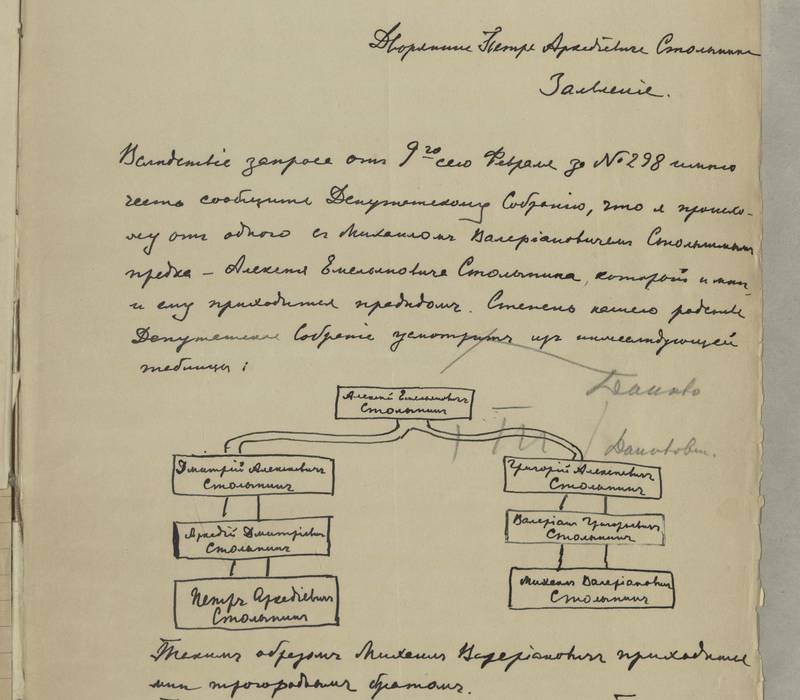 Дворянина Петра Аркадіевича Столыпина
Заявленіе.
Вслѣдствіе запроса отъ 9го сего Февраля за №298 имѣю
честь сообщить Депутатскому Собранію, что я происхо-
жу отъ одного съ Михаиломъ Валеріановичемъ Столыпинымъ
предка – Алексѣя Емельяновича Столыпина, который и мнѣ
и ему приходится прадѣдомъ. Степень нашего родства
Депутатское Собраніе усмотритъ изъ нижеслѣдующей
таблицы:
Алексѣй Емельяновичъ
Столыпинъ
Дмитрій Алексѣевичъ
Столыпинъ
Григорій Алексѣевичъ
Столыпинъ
Аркадій Дмитріевичъ
Столыпинъ
Валеріанъ Григорьевичъ
Столыпинъ
Петръ Аркадіевичъ
Столыпинъ
Михаилъ Валеріановичъ
Столыпинъ
Такимъ образомъ Михаилъ Валеріановичъ приходится
мнѣ троюроднымъ братомъ.